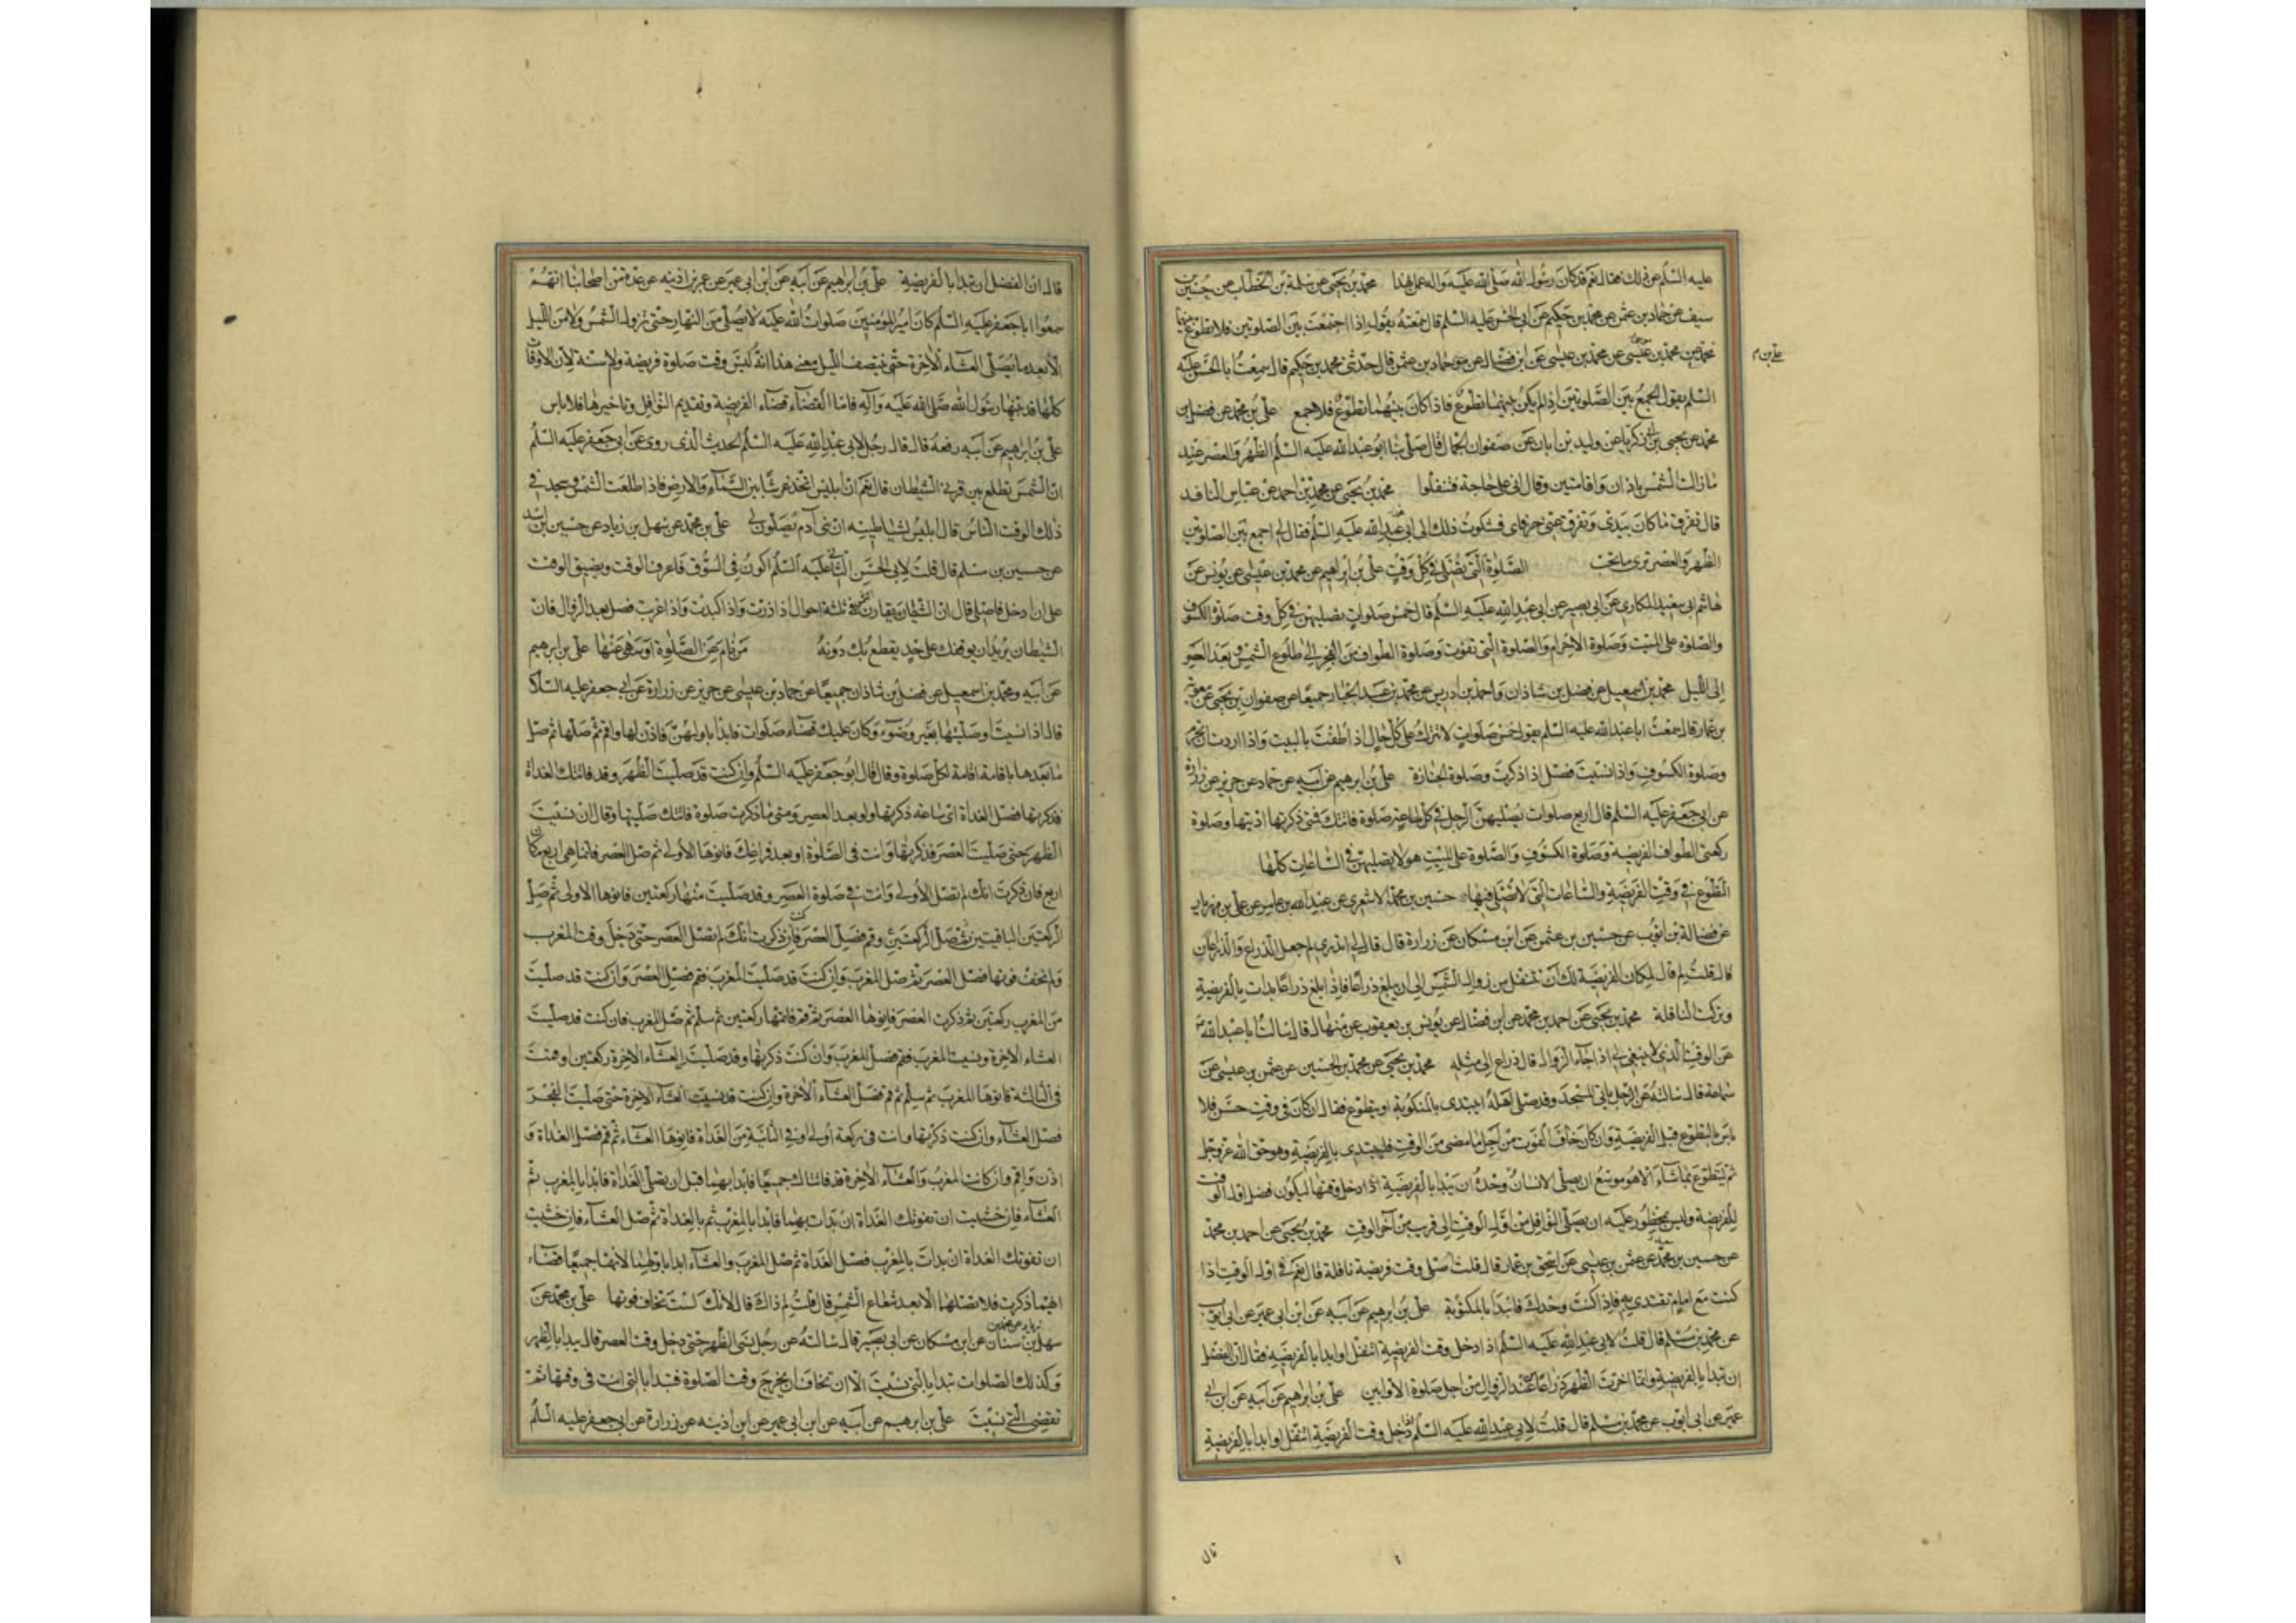 عليه السلم عن ذلك فقال نعم قد كان رسول الله صلى الله عليه واله عمل بهذا محمد بن يحيى عن سلمة بن الخطاب عن حسين بن
سيف عن حماد بن عثمن عن محمد بن حكيم عن ابي الحسن عليه السلم قال سمعته يقول اذا جمعت بين الصلوتين فلا تطوع بينهما
محمد عن محمد بن عيسى عن ابن فضال عن حماد بن عثمن قال حدثني محمد بن حكيم قال سمعت ابا الحسن عليه
علي بن م
السلم يقول الجمع بين الصلوتين اذا لم يكن بينهما تطوع فاذا كان بينهما تطوع فلا جمع علي بن محمد عن فضل بن
محمد عن يحيى بن ابي زكريا عن وليد بن ابان عن صفوان الجمال قال صلى بنا ابو عبد الله عليه السلم الظهر والعصر عند
ما زالت الشمس باذان واقامتين وقال اني على حاجة فتنفلوا محمد بن يحيى عن محمد بن احمد عن عباس الناقد
قال تفرق ما كان بيدي وتفرق عني حرفاي فشكوت ذلك الى ابي عبد الله عليه السلم فقال لي اجمع بين الصلوتين
الظهر والعصر ترى ما تحب الصلوة التي تصلى في كل وقت علي بن ابراهيم عن محمد بن عيسى عن يونس عن
هاشم ابي سعيد المكاري عن ابي بصير عن ابي عبد الله عليه السلم قال خمس صلوات تصليهن في كل وقت صلوة الكسوف
والصلوة على الميت وصلوة الاحرام والصلوة التي تفوت وصلوة الطواف من الفجر الى طلوع الشمس وبعد العصر
الى الليل محمد بن اسمعيل عن فضل بن شاذان واحمد بن ادريس عن محمد بن عبد الجبار جميعا عن صفوان بن يحيى عن معوية
بن عمار قال سمعت ابا عبد الله عليه السلم يقول خمس صلوات لا تترك على كل حال اذا طفت بالبيت واذا اردت ان تحرم
وصلوة الكسوف واذا نسيت فصل اذا ذكرت وصلوة الجنازة علي بن ابرهيم عن ابيه عن حماد عن حريز عن زرارة
عن ابي جعفر عليه السلم قال اربع صلوات يصليهن الرجل في كل ساعة صلوة فاتتك فمتى ذكرتها اديتها وصلوة
ركعتي الطواف الفريضة وصلوة الكسوف والصلوة على الميت هولا يصليهن في الساعات كلها
التطوع في وقت الفريضة والساعات التي لا تصلى فيها حسين بن محمد الاشعري عن عبد الله بن عامر عن علي بن مهزيار
عن فضالة بن ايوب عن حسين بن عثمن عن ابن مسكان عن زرارة قال قال لي اتدري لم جعل الذراع والذراعان
قال قلت لم قال لمكان الفريضة لك ان تتنفل من زوال الشمس الى ان يبلغ ذراعا فاذا بلغ ذراعا بدات بالفريضة
وتركت النافلة محمد بن يحيى عن احمد بن محمد عن ابن فضال عن يونس بن يعقوب عن منهال قال سالت ابا عبد الله
عن الوقت الذي لا ينبغي لي اذا جاء الزوال قال ذراع الى مثله محمد بن يحيى عن محمد بن الحسين عن عثمن بن عيسى عن
سماعة قال سالته عن الرجل ياتي المسجد وقد صلى اهله ايبتدى بالمكتوبة او يتطوع فقال ان كان في وقت حسن فلا
باس بالتطوع قبل الفريضة وان كان خاف الفوت من اجل ما مضى من الوقت فليبتدى بالفريضة وهو حق الله عز وجل
ثم ليتطوع بما شاء الا هو موسع ان يصلي الانسان وحده ان يبدا بالفريضة اذا دخل وقتها ليكون فضل اول الوقت
للفريضة وليس بمحظور عليه ان يصلي النوافل من اول الوقت الى قريب من آخر الوقت محمد بن يحيى عن احمد بن محمد
عن حسين بن محمد عن عثمن بن عيسى عن اسحق بن عمار قال قلت اصلي وقت فريضة نافلة قال نعم في اول الوقت اذا
كنت مع امام تقتدي به فاذا كنت وحدك فابدا بالمكتوبة علي بن ابرهيم عن ابيه عن ابن ابي عمير عن ابي ايوب
عن محمد بن مسلم قال قلت لابي عبد الله عليه السلم اذا دخل وقت الفريضة اتنفل او ابدا بالفريضة فقال ان الفضل
ان تبدا بالفريضة وانما اخرت الظهر ذراعا من عند الزوال من اجل صلوة الاوابين علي بن ابراهيم عن ابيه عن ابن ابي
عمير عن ابي ايوب عن محمد بن مسلم قال قلت لابي عبد الله عليه السلم اذا دخل وقت الفريضة اتنفل او ابدا بالفريضة
قال
قال ان الفضل ان تبدا بالفريضة علي بن ابراهيم عن ابيه عن ابن ابي عمير عن عمر بن اذينه عن عدة من اصحابنا انهم
سمعوا ابا جعفر عليه السلم كان امير المؤمنين صلوات الله عليه لا يصلي من النهار حتى تزول الشمس ولا من الليل
الا بعد ما يصلي العشاء الآخرة حتى ينتصف الليل معنى هذا انه ليس وقت صلوة فريضة ولا سنة لان الاوقات
كلها قد بينها رسول الله صلى الله عليه وآله فاما القضاء قضاء الفريضة وتقديم النوافل وتاخيرها فلا باس
علي بن ابرهيم عن ابيه رفعه قال قال رجل لابي عبد الله عليه السلم الحديث الذي روى عن ابي جعفر عليه السلم
ان الشمس تطلع بين قرني الشيطان قال نعم ان ابليس اتخذ عرشا بين السماء والارض فاذا طلعت الشمس وسجد في
ذلك الوقت الناس قال ابليس لشياطينه ان بني آدم يصلون لي علي بن محمد عن سهل بن زياد عن حسين بن راشد
عن حسين بن سلم قال قلت لابي الحسن الثاني عليه السلم اكون في السوق فاعرف الوقت ويضيق الوقت
على ان ادخل فاصلي قال ان الشيطان يقارن الشمس في ثلثة احوال اذا ذرت واذا كبدت واذا غربت فصل بعد الزوال فان
الشيطان يريد ان يوقفك على حد يقطع بك دونه من نام عن الصلوة او سهى عنها علي بن ابرهيم
عن ابيه ومحمد بن اسمعيل عن فضل بن شاذان جميعا عن حماد بن عيسى عن حريز عن زرارة عن ابي جعفر عليه السلام
قال اذا نسيت او صليتها بغير وضوء وكان عليك قضاء صلوات فابدا باولهن فاذن لها واقم ثم صلها ثم صل
ما بعدها باقامة اقامة لكل صلوة وقال قال ابو جعفر عليه السلم وان كنت قد صليت الظهر وقد فاتتك الغداة
فذكرتها فصل الغداة اي ساعة ذكرتها ولو بعد العصر ومتى ما ذكرت صلوة فاتتك صليتها وقال ان نسيت
الظهر حتى صليت العصر فذكرتها وانت في الصلوة او بعد فراغك فانوها الاولى ثم صل العصر فانما هي اربع مكان
اربع فان ذكرت انك لم تصل الاولى وانت في صلوة العصر وقد صليت منها ركعتين فانوها الاولى ثم صل
الركعتين الباقيتين ثم صل الركعتين وقم فصل العصر فان كنت ذكرت انك لم تصل العصر حتى دخل وقت المغرب
ولم تخف فوتها فصل العصر ثم صل المغرب وان كنت قد صليت المغرب فقم فصل العصر وان كنت قد صليت
من المغرب ركعتين ثم ذكرت العصر فانوها العصر ثم قم فاتمها ركعتين ثم سلم ثم صل المغرب فان كنت قد صليت
العشاء الاخرة ونسيت المغرب فقم فصل المغرب وان كنت ذكرتها وقد صليت من العشاء الاخرة ركعتين او قمت
في الثالثة فانوها المغرب ثم سلم ثم قم فصل العشاء الآخرة وان كنت قد نسيت العشاء الاخرة حتى صليت الفجر
فصل العشاء وان كنت ذكرتها وانت في ركعة اولى او في الثانية من الغداة فانوها العشاء ثم قم فصل الغداة و
اذن واقم وان كانت المغرب والعشاء الاخرة قد فاتتاك جميعا فابدا بهما قبل ان تصلي الغداة فابدا بالمغرب ثم
العشاء فان خشيت ان تفوتك الغداة ان بدات بهما فابدا بالمغرب ثم بالغداة ثم صل العشاء فان خشيت
ان تفوتك الغداة ان بدات بالمغرب فصل الغداة ثم صل المغرب والعشاء ابدا باولهما لانهما جميعا قضاء
ايهما ذكرت فلا تصلهما الا بعد شعاع الشمس قال قلت لم ذاك قال لانك لست تخاف فوتها علي بن محمد عن
سهل بن زياد عن محمد بن سنان عن ابن مسكان عن ابي بصير قال سالته عن رجل نسى الظهر حتى دخل وقت العصر قال يبدا بالظهر
وكذلك الصلوات تبدا بالتي نسيت الا ان تخاف ان يخرج وقت الصلوة فتبدا بالتي انت في وقتها ثم
تقضي التي نسيت علي بن ابرهيم عن ابيه عن ابن ابي عمير عن ابن اذينه عن زرارة عن ابي جعفر عليه السلم